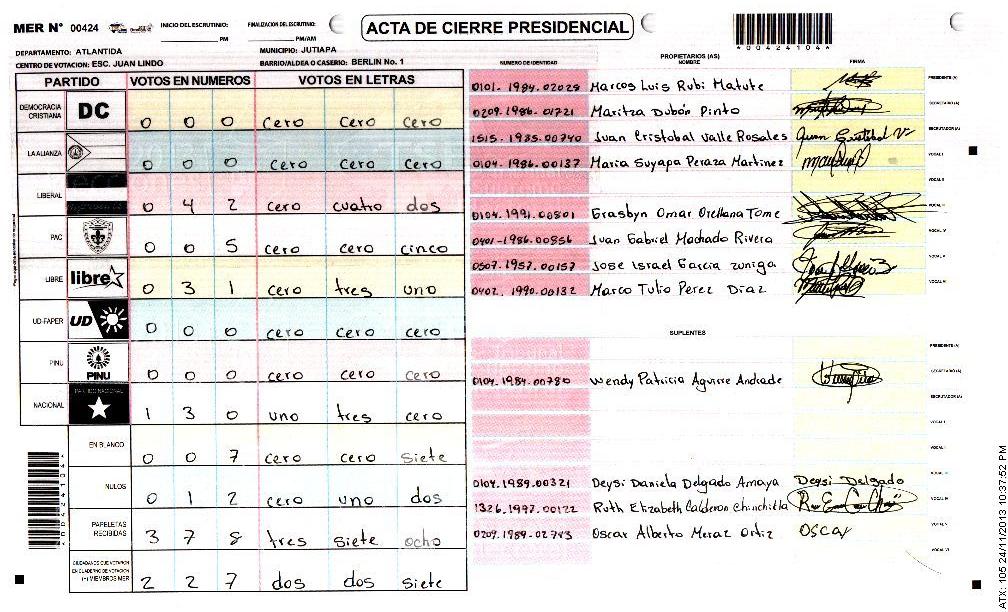 MER N° 00424
INICIO DEL ESCRUTINIO:
PM
FINALIZACION DEL ESCRUTINIO:
PM/AM
ACTA DE CIERRE PRESIDENCIAL
*00424104*
DEPARTAMENTO: ATLANTIDA
MUNICIPIO: JUTIAPA
CENTRO DE VOTACION: ESC. JUAN LINDO
BARRIO/ALDEA O CASERIO: BERLIN No. 1
PARTIDO VOTOS EN NUMEROS VOTOS EN LETRAS
DEMOCRACIA CRISTIANA DC 0 0 0 cero cero cero
LA ALIANZA 0 0 0 cero cero cero
LIBERAL 0 4 2 cero cuatro dos
PAC 0 0 5 cero cero cinco
LIBRE libre 0 3 1 cero tres uno
UD-FAPER UD 0 0 0 cero cero cero
PINU PINU 0 0 0 cero cero cero
NACIONAL 1 3 0 uno tres cero
EN BLANCO 0 0 7 cero cero siete
NULOS 0 1 2 cero uno dos
PAPELETAS RECIBIDAS 3 7 8 tres siete ocho
CIUDADANOS QUE VOTARON
EN CUADERNO DE VOTACION
(+) MIEMBROS MER 2 2 7 dos dos siete
PROPIETARIOS (AS)
NUMERO DE IDENTIDAD NOMBRE FIRMA
0101-1984-02028 Marcos Luis Rubi Matute PRESIDENTE (A)
0209-1986-01721 Maritza Dubón Pinto SECRETARIO (A)
1515-1935-00740 Juan Cristobal Valle Rosales ESCRUTADOR (A)
0104-1986-00137 Maria Suyapa Peraza Martinez VOCAL I
VOCAL II
0104-1991-00801 Erasbyn Omar Orellana Tome VOCAL III
0401-1986-00856 Juan Gabriel Machado Rivera VOCAL IV
0507-1957-00157 Jose Israel Garcia zuniga VOCAL V
0402-1990-00132 Marco Tulio Perez Diaz VOCAL VI
SUPLENTES
PRESIDENTE (A)
0104-1984-00780 Wendy Patricia Aguirre Andrade SECRETARIO (A)
ESCRUTADOR (A)
VOCAL I
VOCAL II
0104-1989-00321 Deysi Daniela Delgado Amaya Deysi Delgado VOCAL III
1326-1997-00122 Ruth Elizabeth Calderon Chinchilla VOCAL IV
0209-1989-02743 Oscar Alberto Meraz Ortiz OSCAR VOCAL V
VOCAL VI
ATX: 105 24/11/2013 10:37:52 PM